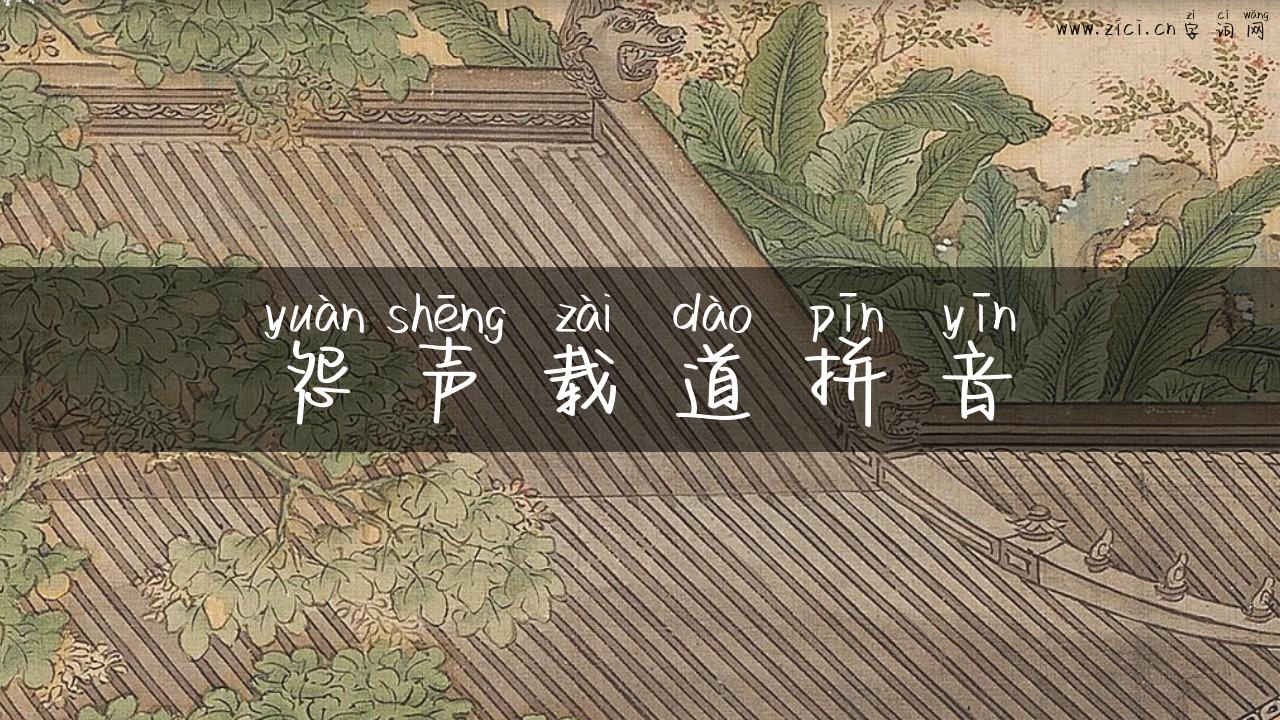 zì cí wǎng
www.zici.cn 字词网
yuàn shēng zài dào pīn yīn
怨声载道拼音